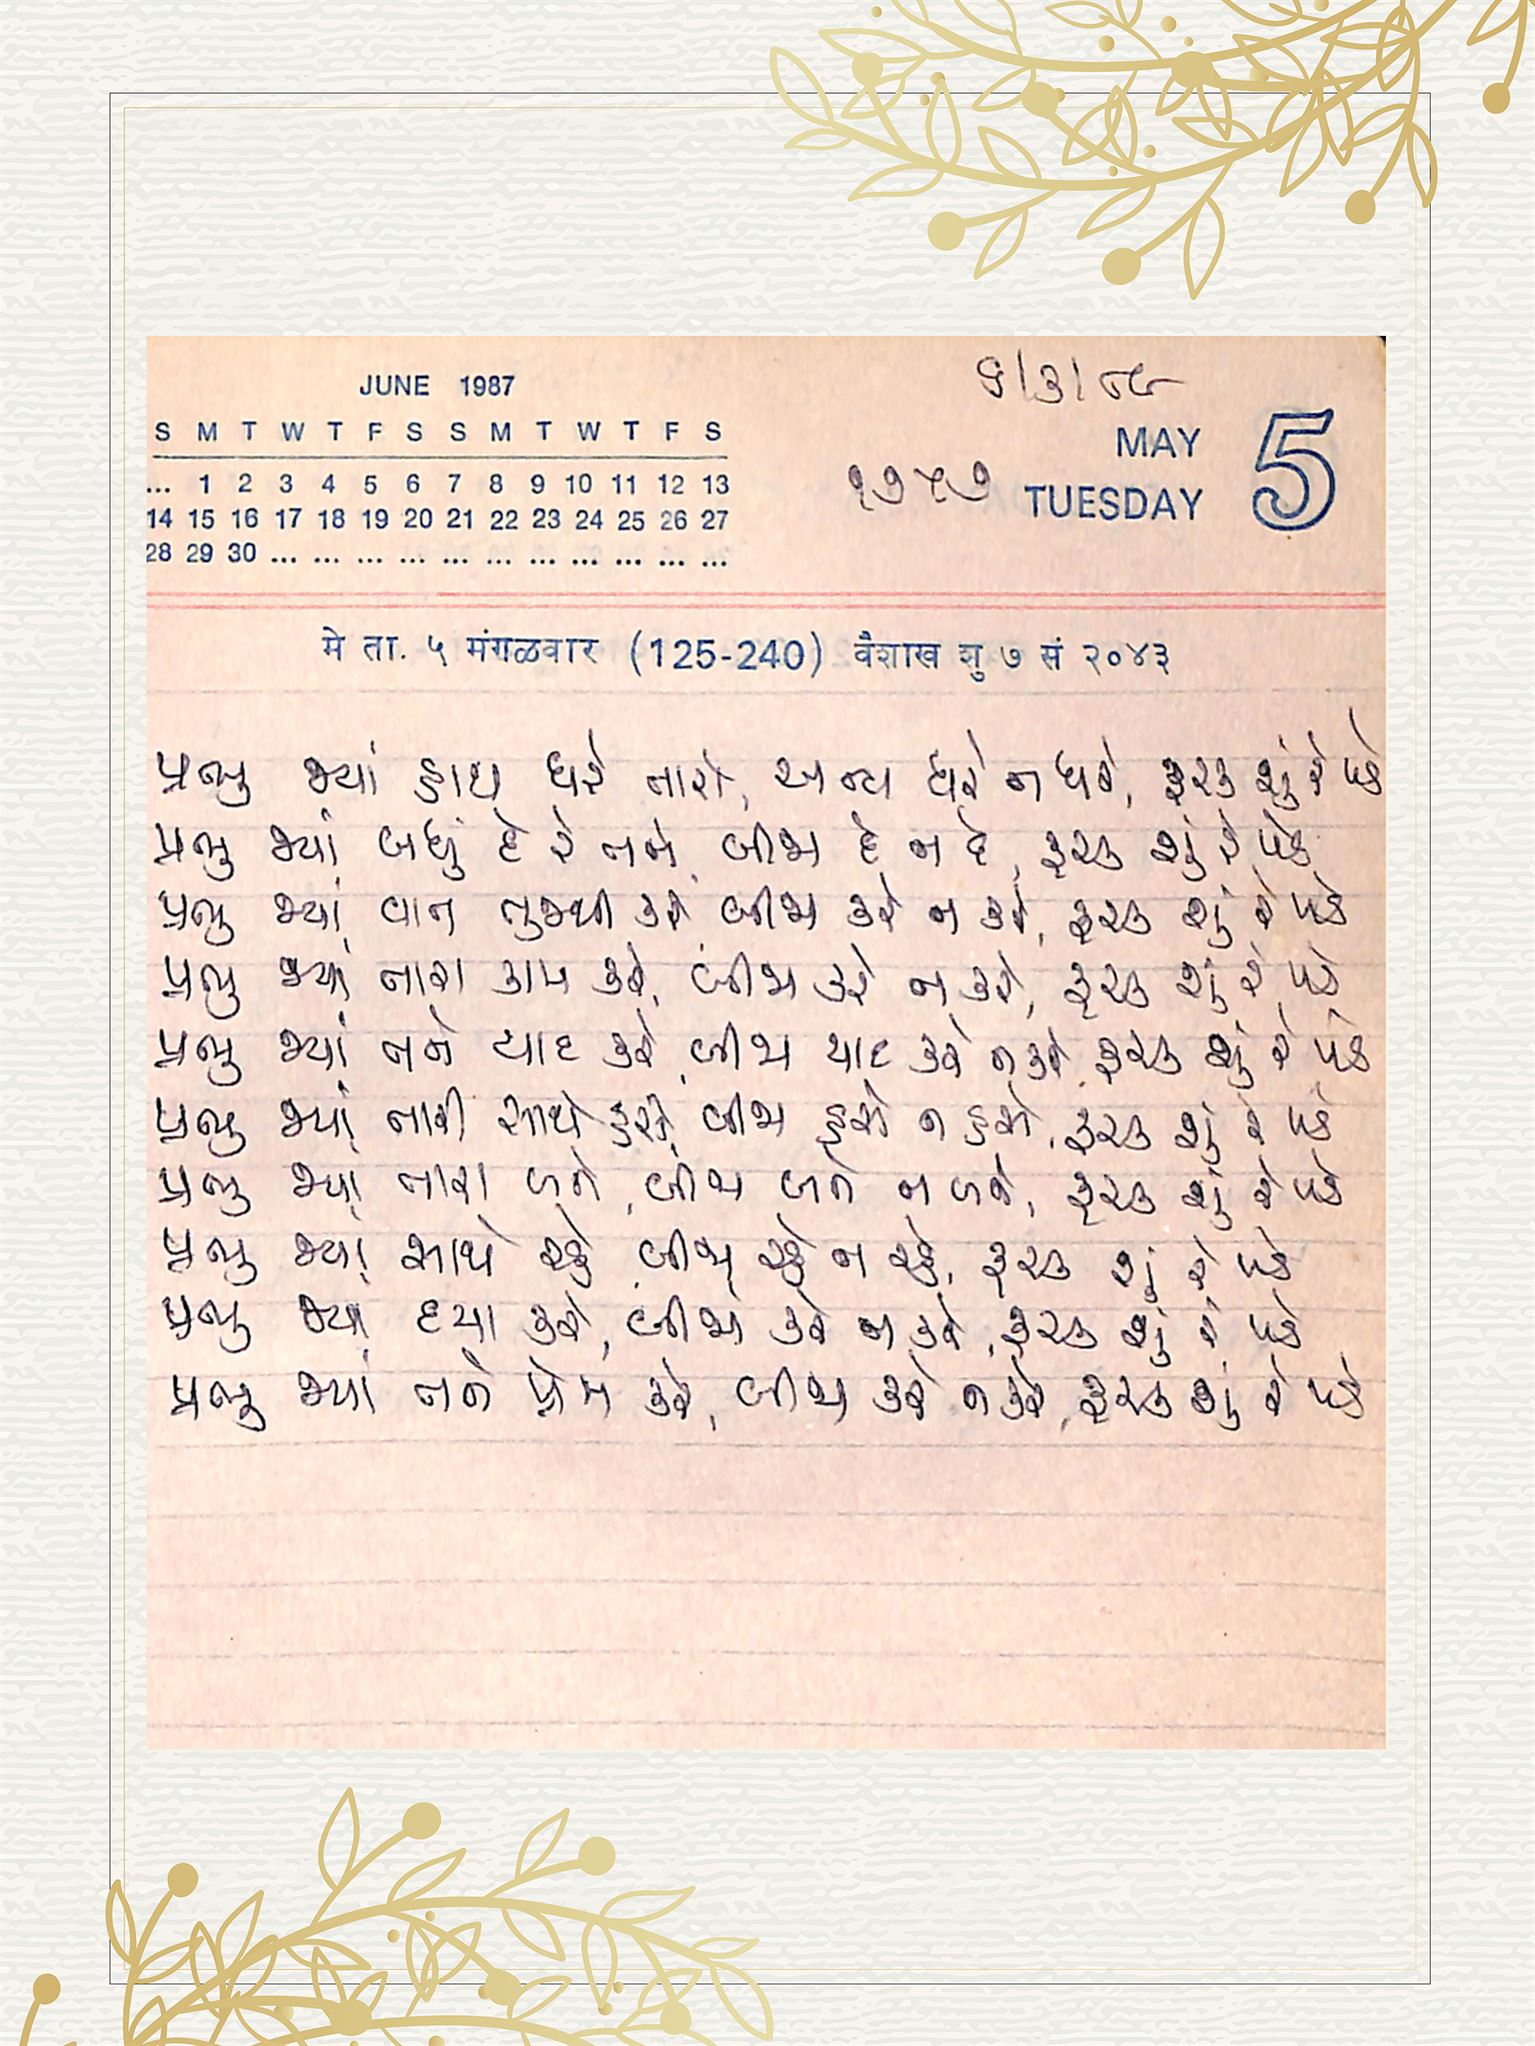 JUNE 1987
S M T W T F S S M T W T F S
... 1 2 3 4 5 6 7 8 9 10 11 12 13
14 15 16 17 18 19 20 21 22 23 24 25 26 27
28 29 30 ... ... ... ... ... ... ... ... ... ... ...
૭/૩/૮૯
MAY 5
૧૭૫૭ TUESDAY
मे ता. ५ मंगळवार (125-240) वैशाख शु ७ सं २०४३
પ્રભુ જ્યાં હાથ ધરે તારો, અન્ય ધરે ન ધરે, ફરક શું રે પડે
પ્રભુ જ્યાં બધું દે રે તને, બીજા દે ન દે, ફરક શું રે પડે
પ્રભુ જ્યાં વાત તુજથી કરે બીજા કરે ન કરે, ફરક શું રે પડે
પ્રભુ જ્યાં તારા કામ કરે, બીજા કરે ન કરે, ફરક શું રે પડે
પ્રભુ જ્યાં તને યાદ કરે, બીજા યાદ કરે ન કરે, ફરક શું રે પડે
પ્રભુ જ્યાં તારી સાથે હસે, બીજા હસે ન હસે, ફરક શું રે પડે
પ્રભુ જ્યાં તારા બને, બીજા બને ન બને, ફરક શું રે પડે
પ્રભુ જ્યાં સાથે રહે, બીજા રહે ન રહે, ફરક શું રે પડે
પ્રભુ જ્યાં દયા કરે, બીજા કરે ન કરે, ફરક શું રે પડે
પ્રભુ જ્યાં તને પ્રેમ કરે, બીજા કરે ન કરે, ફરક શું રે પડે